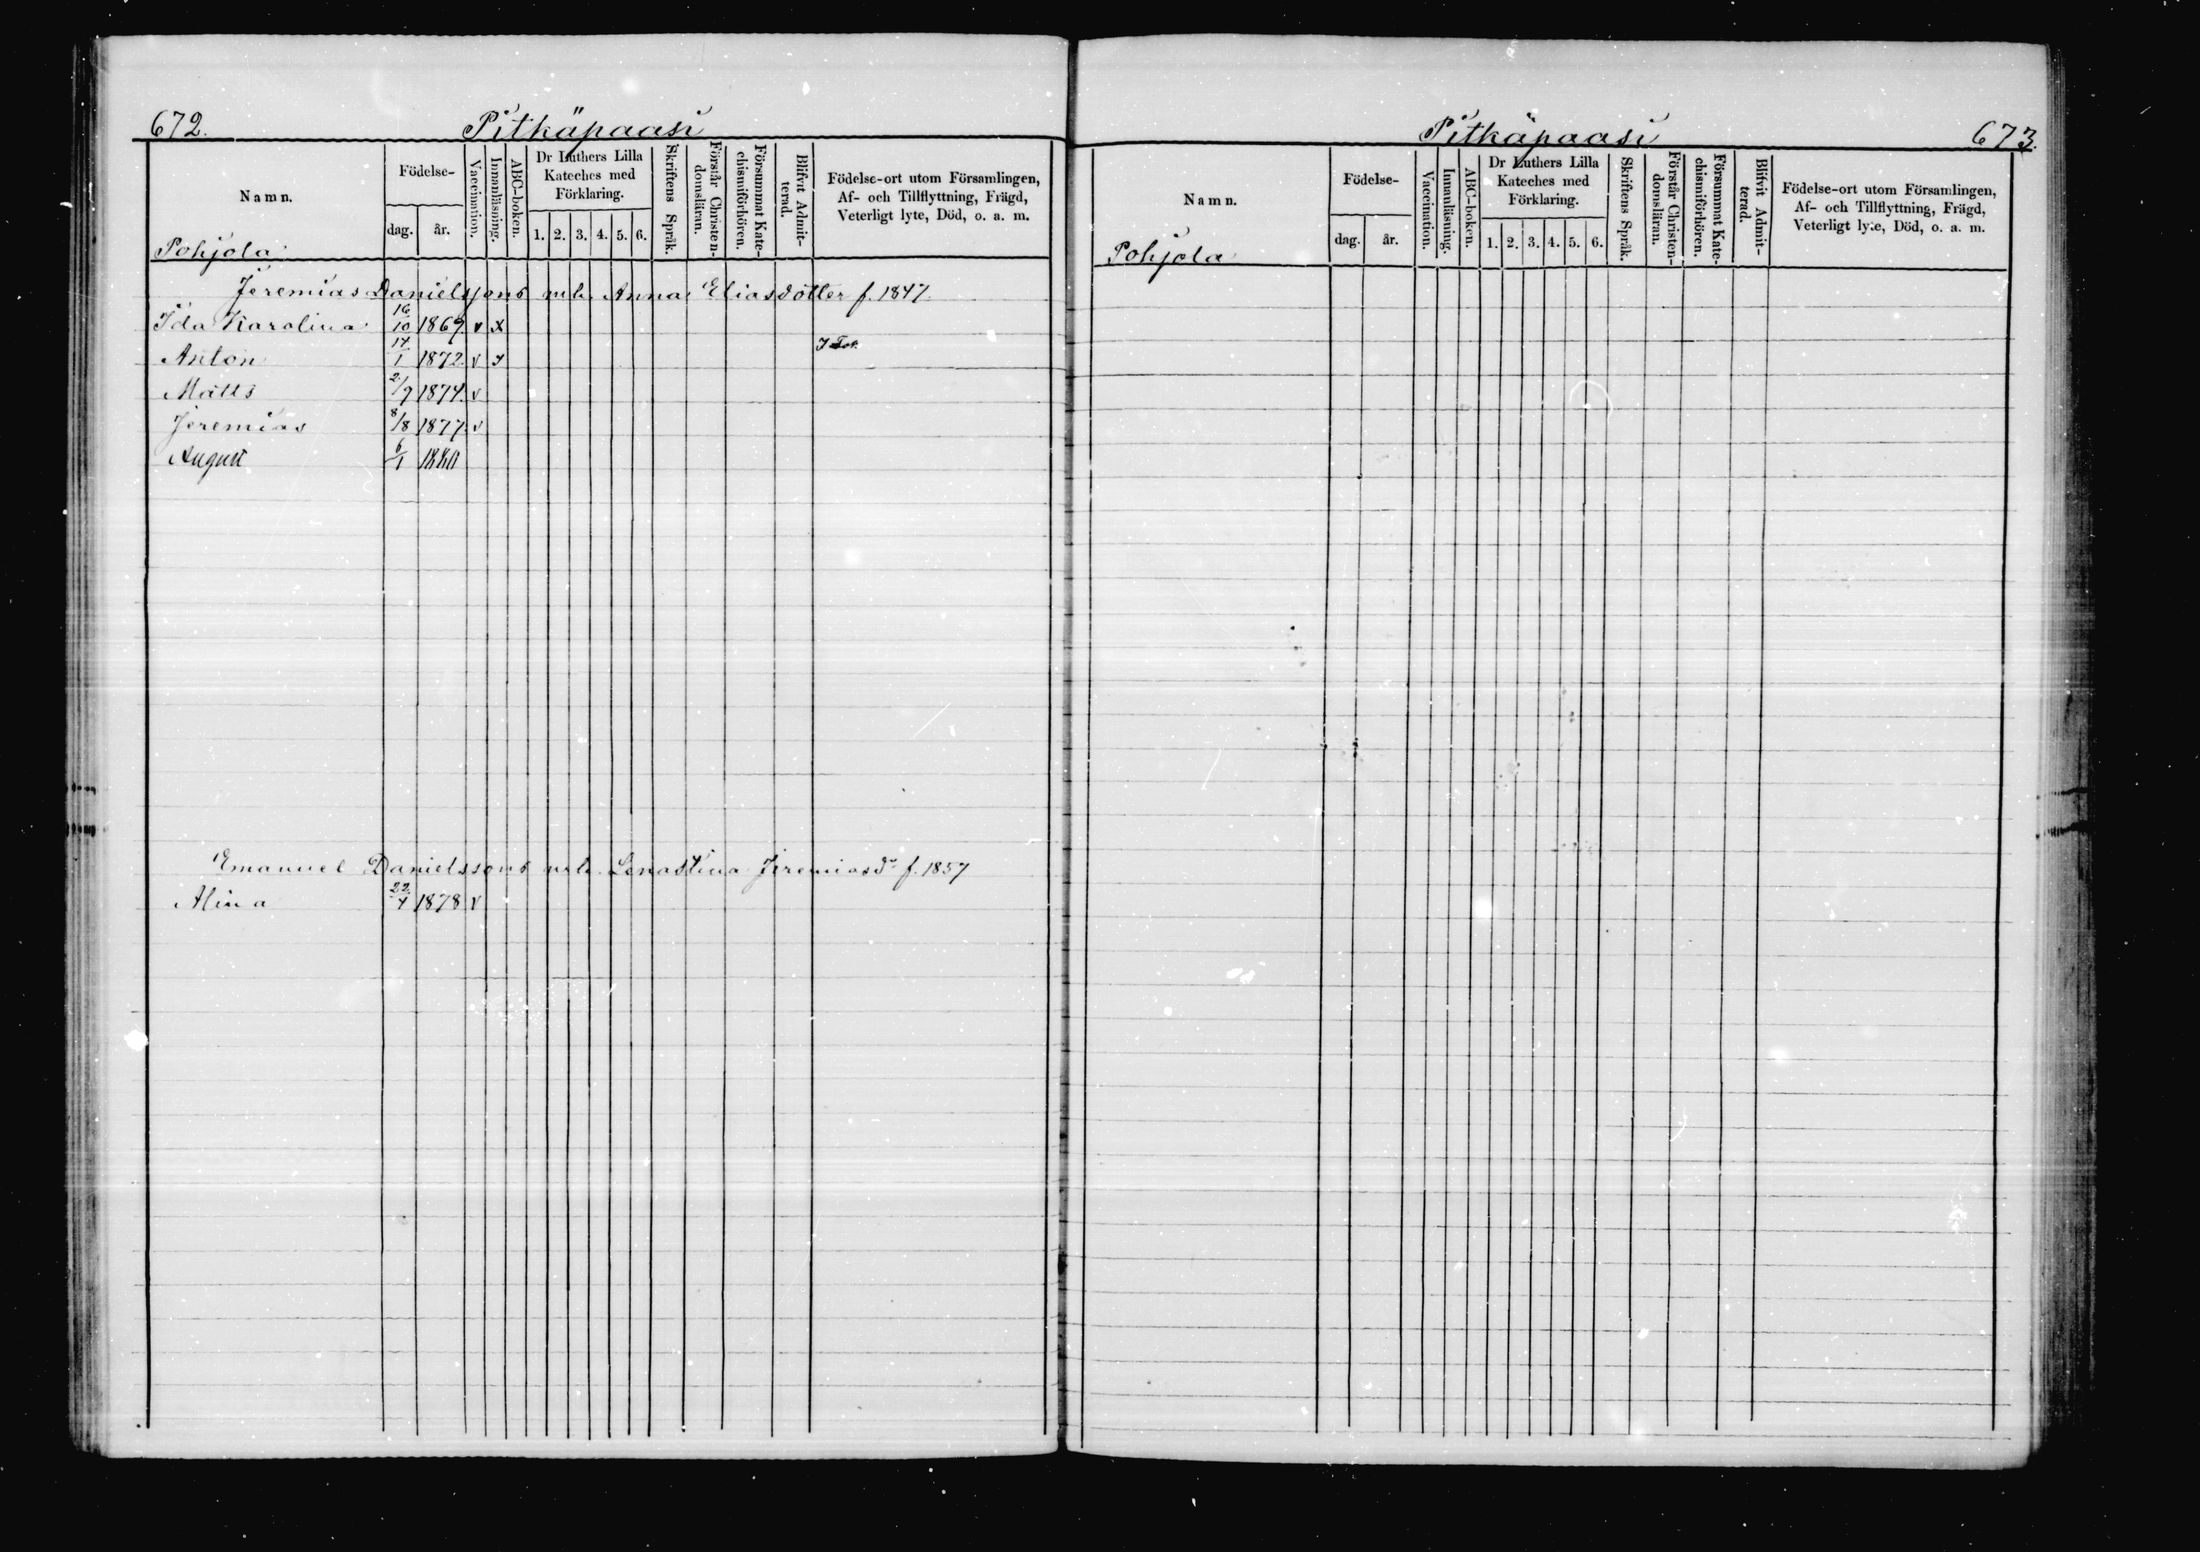 672. Pitkäpaasi
Namn. Födelse- dag. år. Vaccination. Innanläsning. ABC-boken. Dr Luthers Lilla Kateches med Förklaring. 1. 2. 3. 4. 5. 6. Skriftens Språk. Förstår Christendomsläran. Försummat Katechismiförhören. Blifvit Admitterad. Födelse-ort utom Församlingen, Af- och Tillflyttning, Frägd, Veterligt lyte, Död, o. a. m.
Pohjola
Jeremias Danielssons m.h. Anna Eliasdotter f. 1847.
Ida Karolina 16/10 1869. v x
Anton 1872. v
Matts 2/9 1874. v
Jeremias 8/8 1877. v
August 6/1 1880
Emanuel Danielssons m.h. Lenastina Jeremiasdr f. 1857
Alina 1878 v
Pitkäpaasi 673.
Namn. Födelse- dag. år. Vaccination. Innanläsning. ABC-boken. Dr Luthers Lilla Kateches med Förklaring. 1. 2. 3. 4. 5. 6. Skriftens Språk. Förstår Christendomsläran. Försummat Katechismiförhören. Blifvit Admitterad. Födelse-ort utom Församlingen, Af- och Tillflyttning, Frägd, Veterligt lyte, Död, o. a. m.
Pohjola